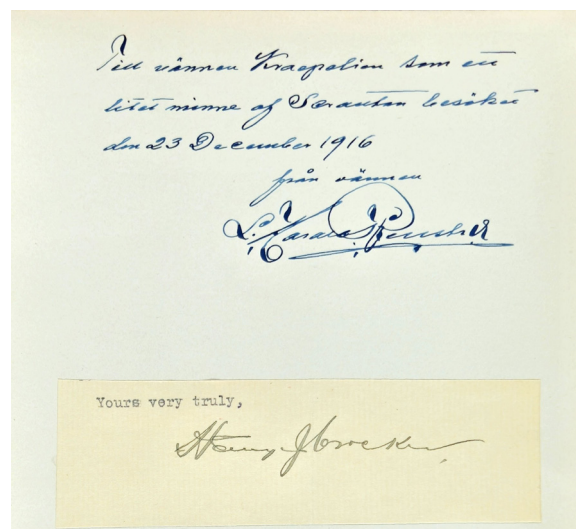 Till vännen Kraepelien som ett
litet minne af Scranton besöket
den 23 December 1916
från vännen
L. Harald
Yours very truly,
Henry J Crocker